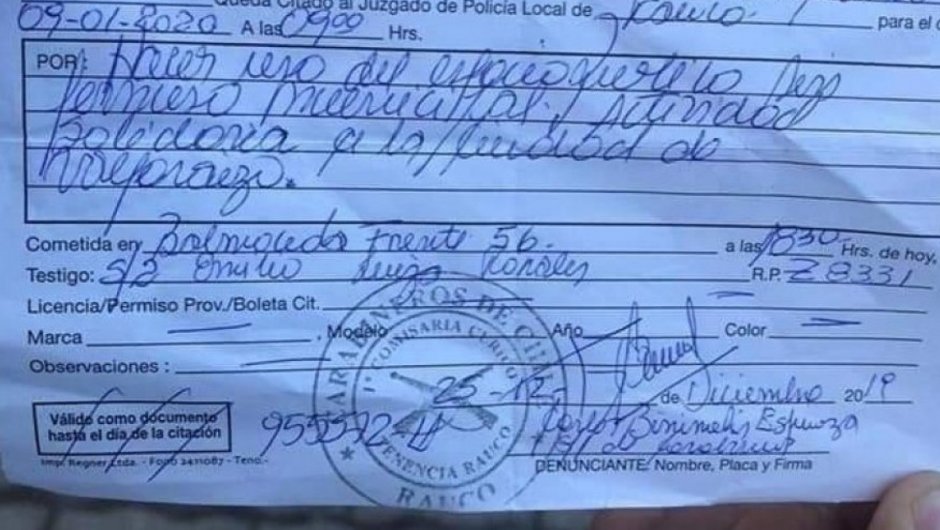 Queda Citado al Juzgado de Policía Local de Rauco.
09-01-2020 A las 0900 Hrs. para el
POR: Hacer uso del espacio público sin
permiso municipal, Actividad
Solidaria a la ciudad de
Valparaizo.
Cometida en Balmaceda Frente 56. a las 1830 Hrs. de hoy,
Testigo: S/2 Emilio Rojas R.P. Z 8331
Licencia/Permiso Prov./Boleta Cit.
Marca Modelo Año Color
Observaciones :
25 -12, de Diciembre 2019
Válido como documento
hasta el día de la citación
955572-4
Binimelis Espinoza
Imp. Regner Ltda. - Fono 2411087 - Teno.-
DENUNCIANTE: Nombre, Placa y Firma
CARABINEROS DE CHILE
1ª COMISARIA CURICO
TENENCIA RAUCO
RAUCO